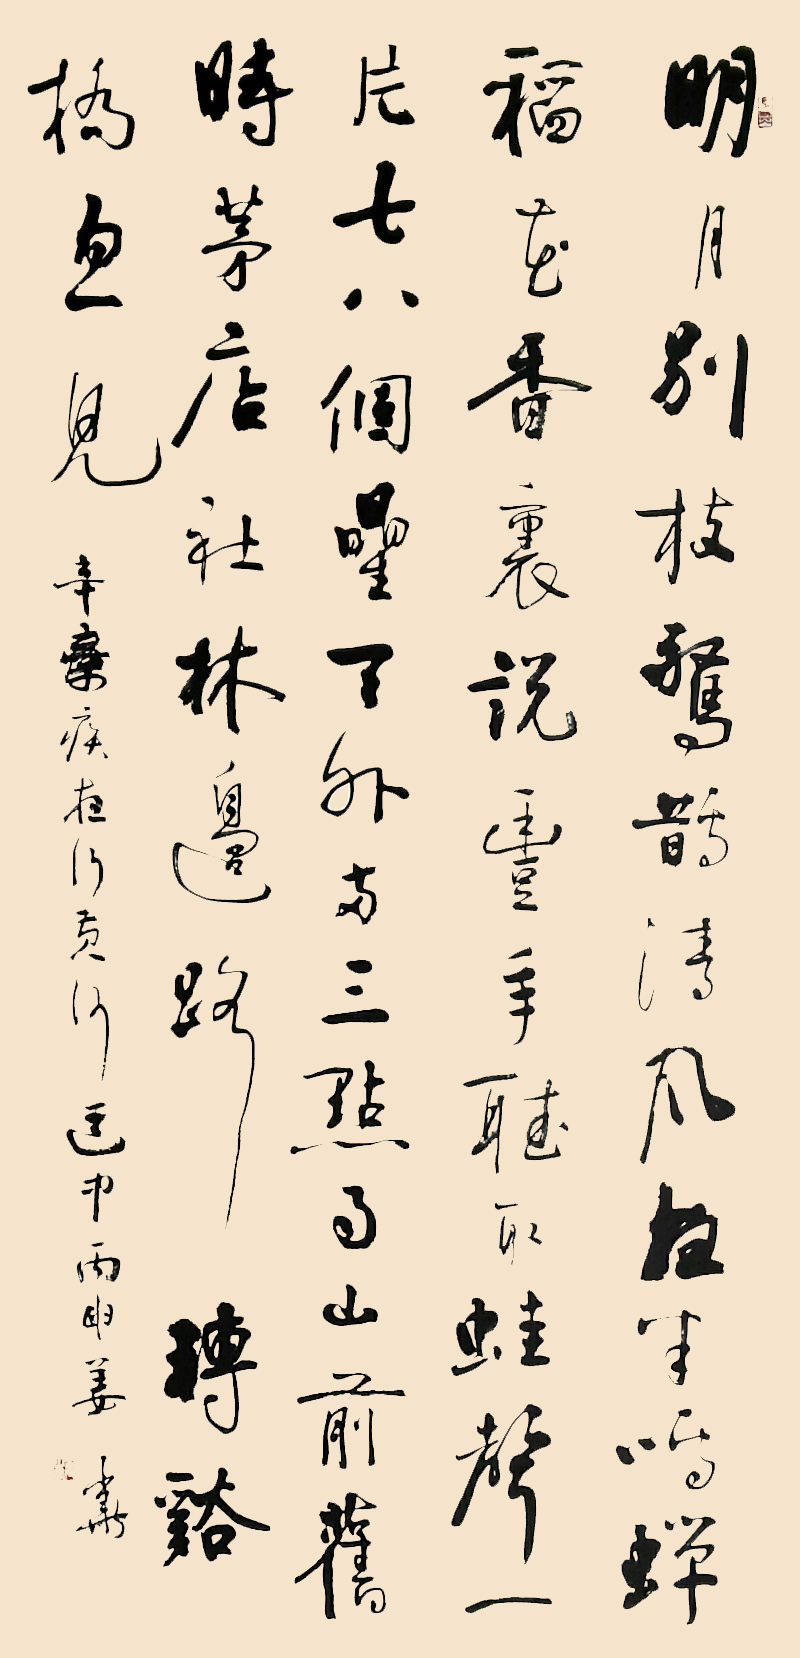 明月别枝驚鵲清風夜半鳴蟬
稻花香裏說豐年聽取蛙聲一
片七八個星天外兩三點雨山前舊
時茅店社林邊路轉谿
橋忽見
辛棄疾夜行黄沙道中丙申姜